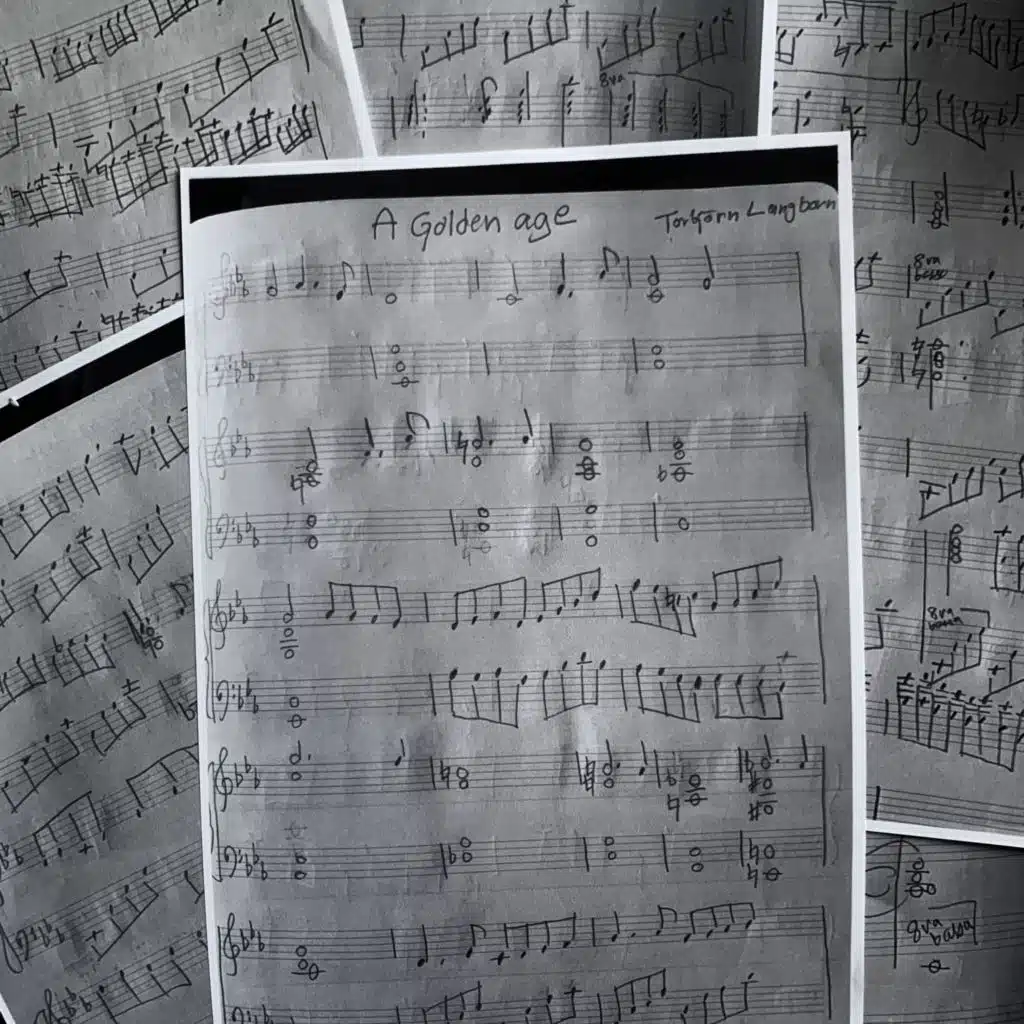 8va
A Golden age
Torbjorn Langborn
8va
bassa
8va
bassa
8va
bassa